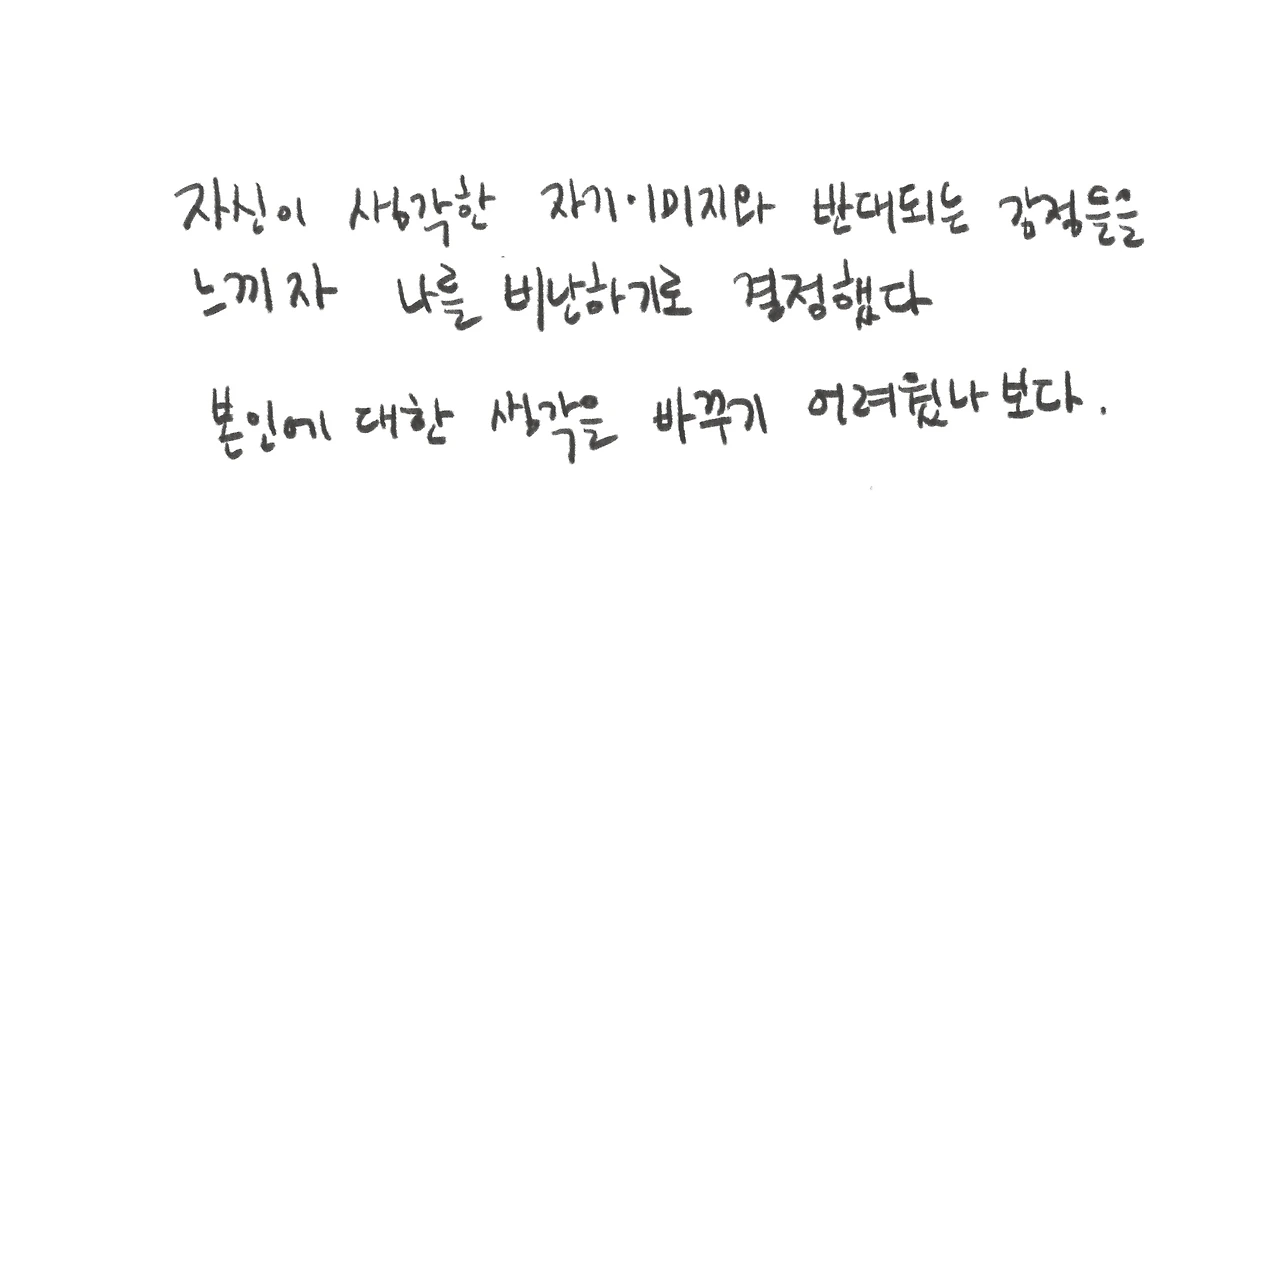 자신이 생각한 자기이미지와 반대되는 감정들을
느끼자 나를 비난하기로 결정했다
본인에 대한 생각을 바꾸기 어려웠나 보다.